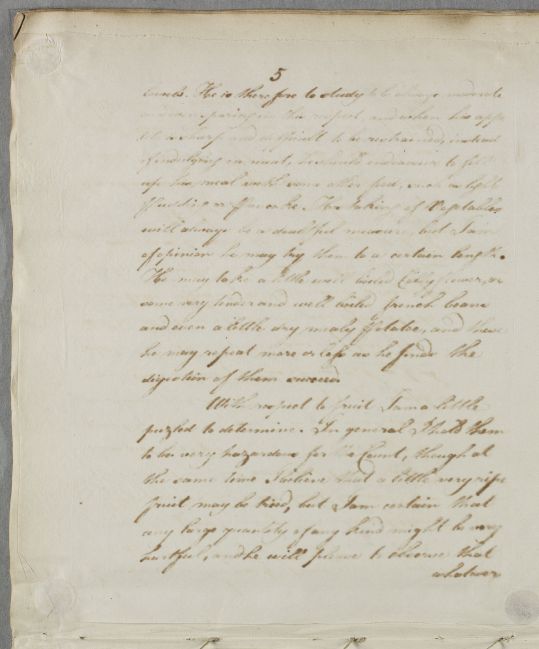 5
He is therefore to study to be always moderate
and sparing in this respect, and when his appe
tite is sharp and difficult to be restrained, instead
of indulging in meat, he must endeavour to fill
up his meal with some other food, such as light
Pudding or Pancake. The taking of Vegetables
will always be a doubtful measure, but I am
of opinion he may try them to a certain length.
He may take a little well boiled Collyflower, or
some very tender and well boiled french beans
and even a little dry mealy Potatoe, and these
he may repeat more or less as he finds the
digestion of them succeed
With respect to fruit I am a little
puzled to determine. In general I hold them
to be very hazardous for the Count, though at
the same time I believe that a little very ripe
fruit may be tried, but I am certain that
any large quantity of any kind might be very
hurtful, and he will please to observe that
whatever